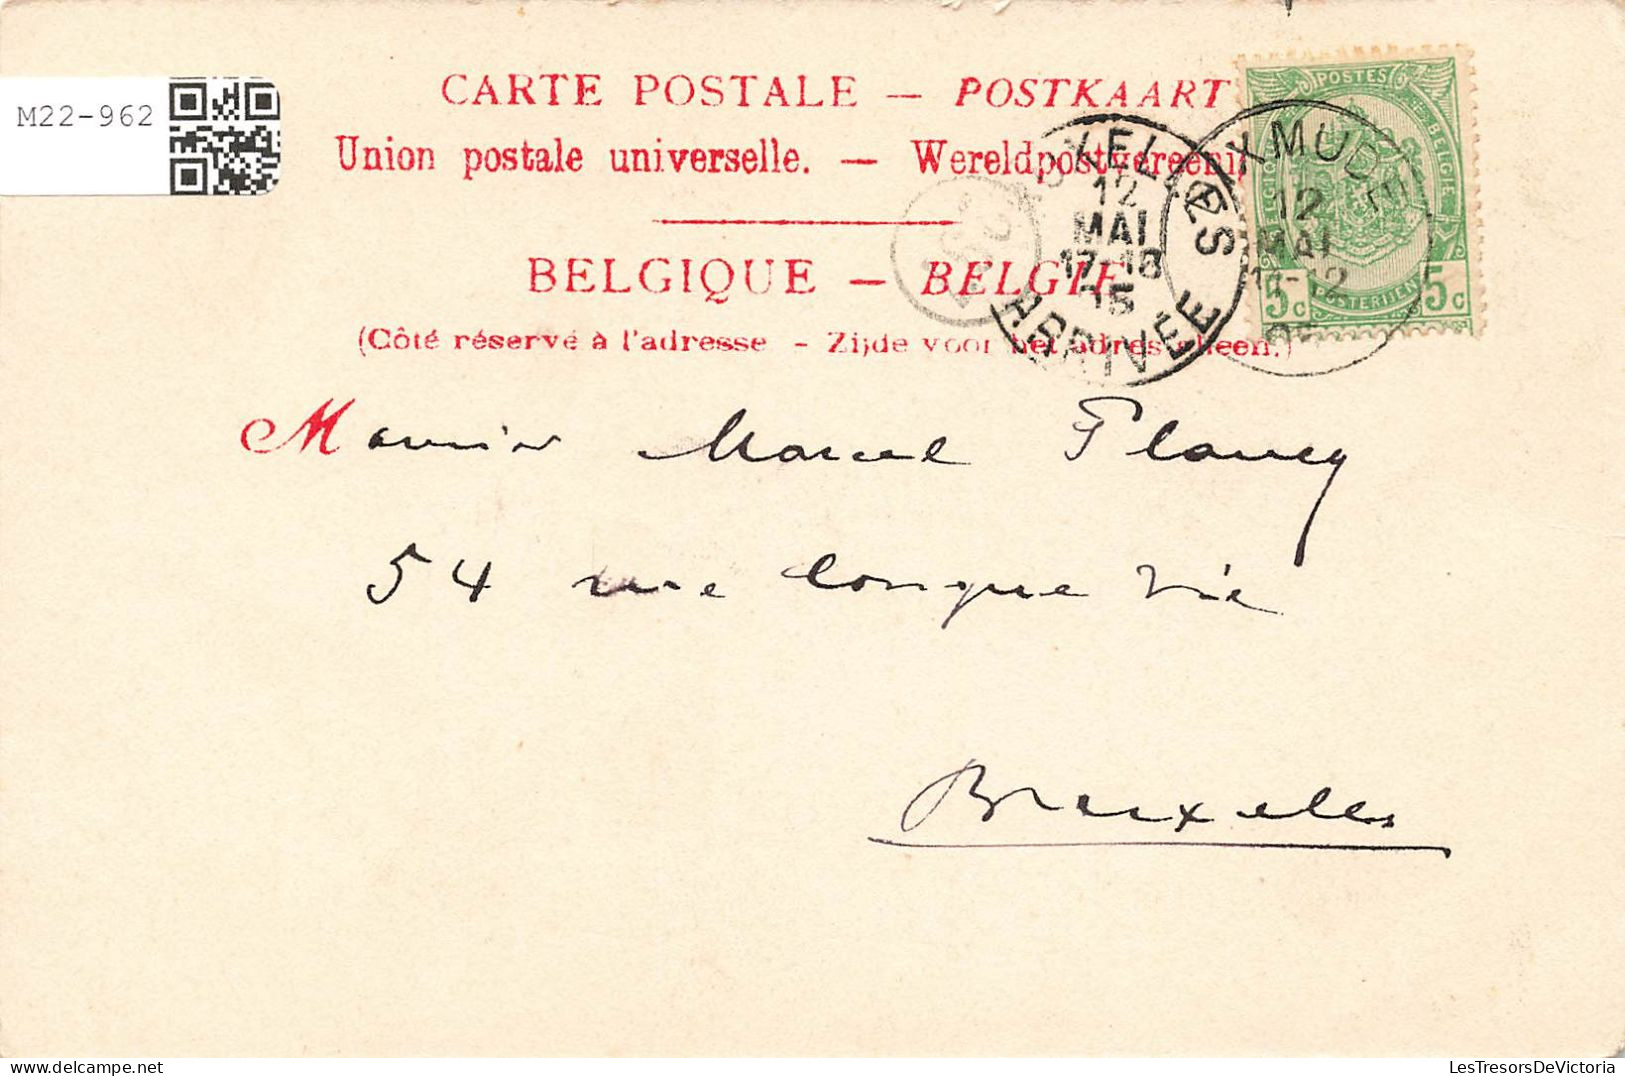 M22-962
CARTE POSTALE — POSTKAART
Union postale universelle. — Wereldpostvereeni
BELGIQUE — BELGIE
(Côté réservé à l'adresse - Zijde voor het adres alleen.)
POSTES
BELGIE
5c 5c
POSTERIJEN
XELLES
12
MAI
17-18
05
ARRIVÉE
XMUDE
12
MAI
11-12
05
Marcel
54 rue longue vie
Bruxelles
LesTresorsDeVictoria